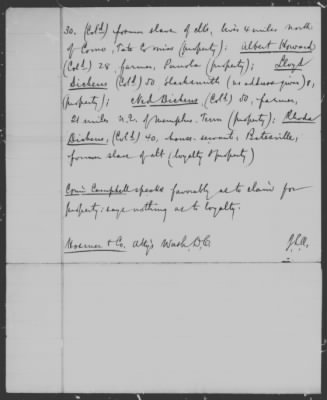 30. (Col'd) former slave of clt, lives 4 miles north
of Como, Tate Co miss (property); Albert Howard
(Col'd) 28, farmer, Panola (property); Lloyd
Dickens (Col'd) 50 blacksmith (no address given),
(property); Ned Dickens (Col'd) 50, farmer,
21 miles N.E. of Memphis Tenn (property); Rhoda
Dickens, (Col'd) 40, house-servant, Batesville,
former slave of clt (loyalty & property)
Com'r Campbell speaks favorably as to claim for
property; says nothing as to loyalty.
& Co. Att'ys Wash. D.C.